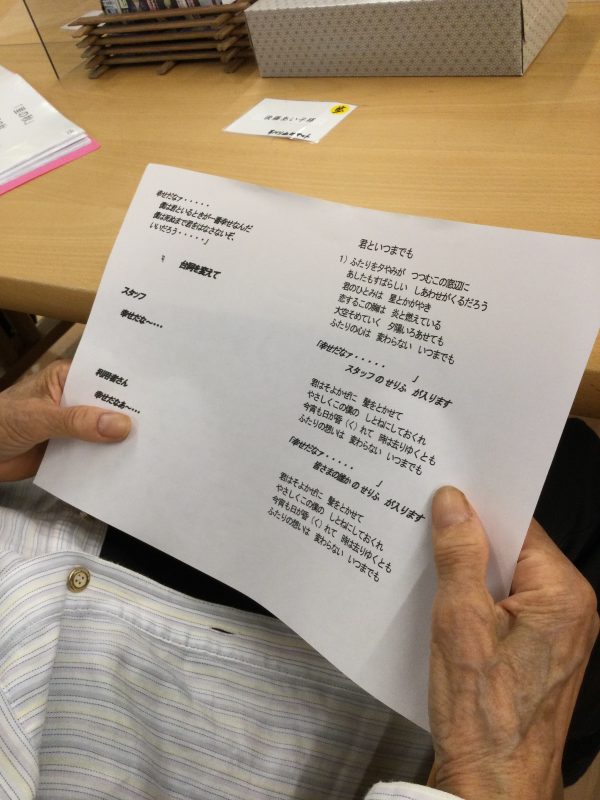 幸せだなァ・・・・・
僕は君といるときが一番幸せなんだ
僕は死ぬまで君をはなさないぞ、
いいだろう・・・・・」
台詞を変えて
スタッフ
幸せだな～・・・
利用者さん
幸せだなあ～・・・
君といつまでも
1）ふたりを夕やみが つつむこの窓辺に
あしたもすばらしい しあわせがくるだろう
君のひとみは 星とかがやき
恋するこの胸は 炎と燃えている
大空そめていく 夕陽いろあせても
ふたりの心は 変わらない いつまでも
「幸せだなァ・・・・・ 」
スタッフ の せりふ が入ります
君はそよかぜに 髪をとかせて
やさしくこの僕の しとねにしておくれ
今宵も日が昏（く）れて 時は去りゆくとも
ふたりの想いは 変わらない いつまでも
「幸せだなァ・・・・・ 」
皆さまの誰か の せりふ が入ります
君はそよかぜに 髪をとかせて
やさしくこの僕の しとねにしておくれ
今宵も日が昏（く）れて 時は去りゆくとも
ふたりの想いは 変わらない いつまでも